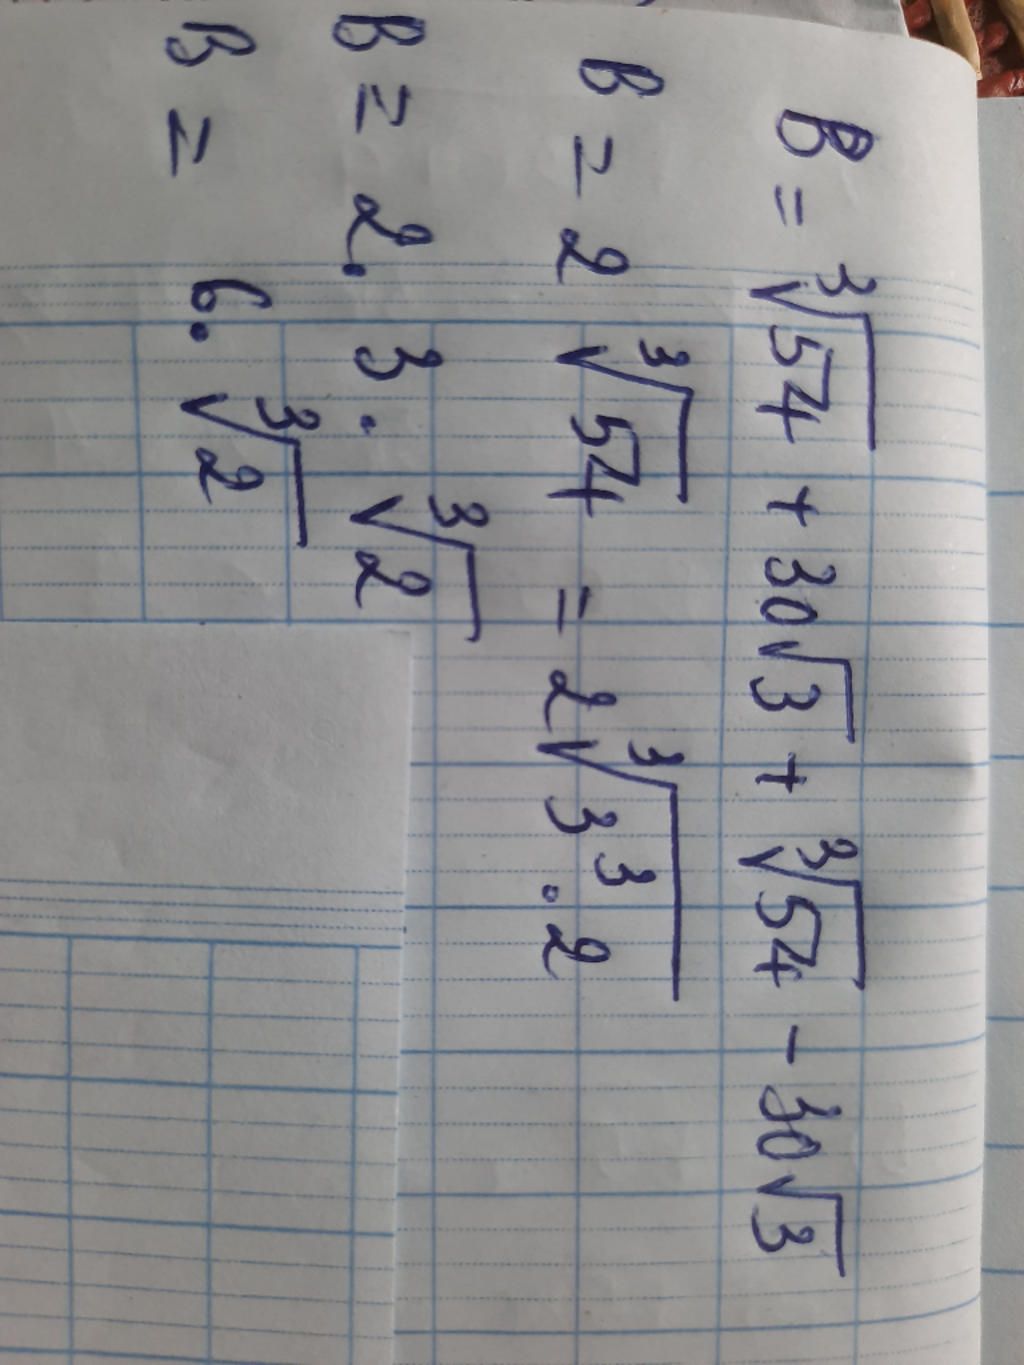 B = ∛54 + 30√3 + ∛54 - 30√3
B = 2 ∛54 = 2∛(3³ . 2)
B = 2 . 3 . ∛2
B = 6 . ∛2